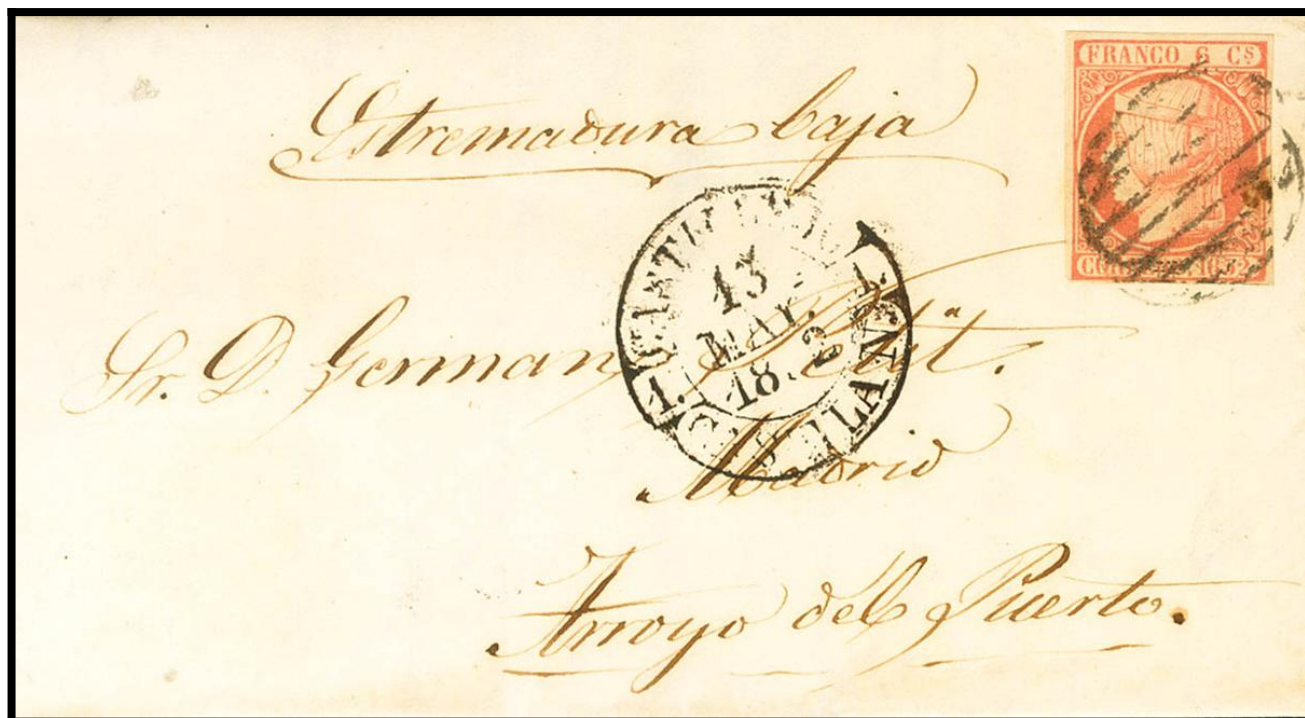 FRANCO 6 Cs
Estremadura baja
13
MAY.
18. 2
1.
Sr. D. German
Madrid
Arroyo del Puerto.